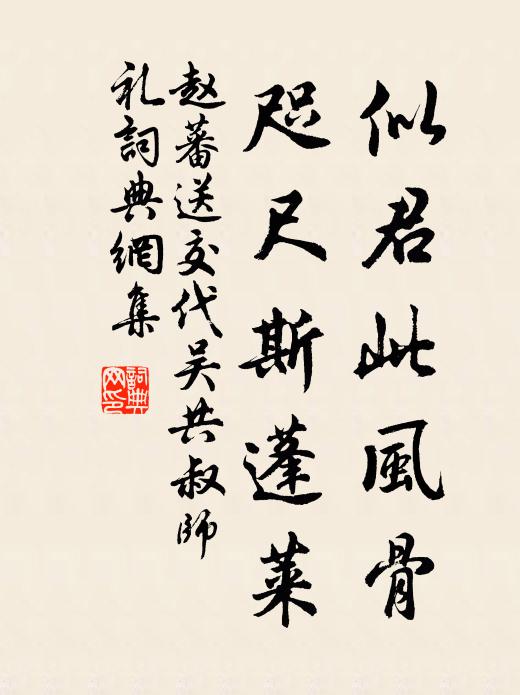 似君此風骨
咫尺斯蓬萊
赵蕃送交代吴共叔師
礼詞典網集
詞典網印